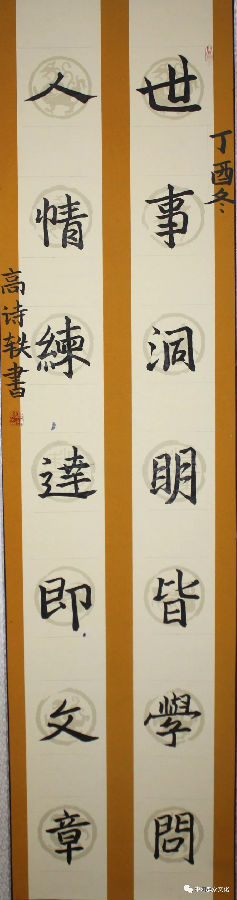 丁酉冬
世事洞明皆學問
人情練達即文章
高诗轶書